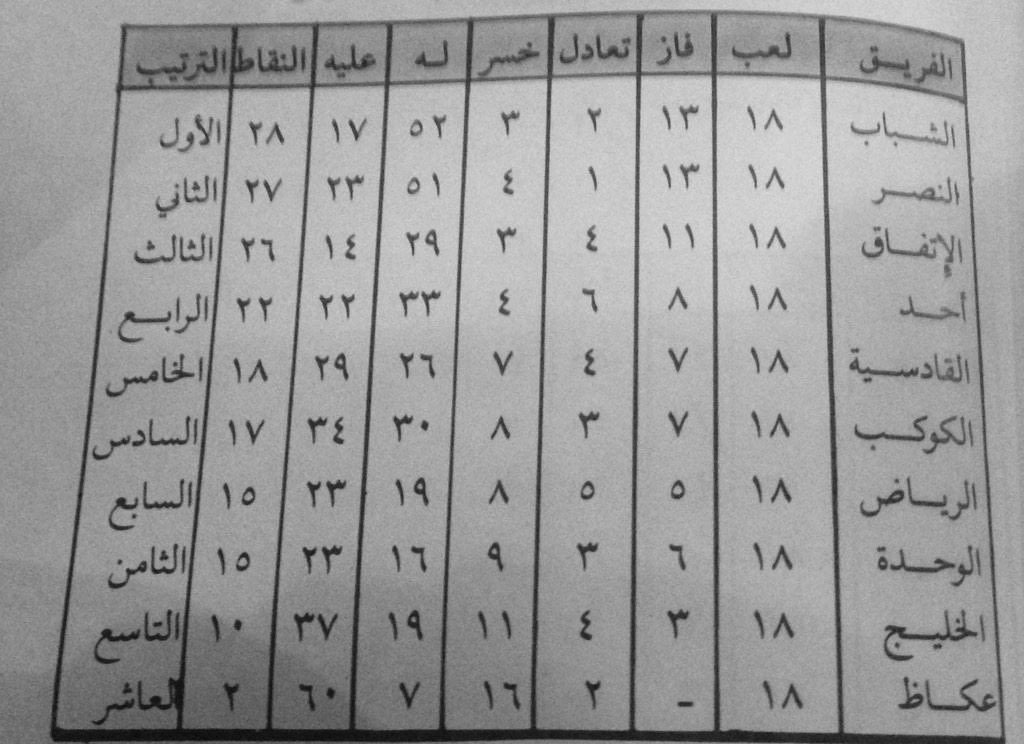 الفريق لعب فاز تعادل خسر له عليه النقاط الترتيب
الشباب ١٨ ١٣ ٢ ٣ ٥٢ ١٧ ٢٨ الأول
النصر ١٨ ١٣ ١ ٤ ٥١ ٢٣ ٢٧ الثاني
الإتفاق ١٨ ١١ ٤ ٣ ٢٩ ١٤ ٢٦ الثالث
أحد ١٨ ٨ ٦ ٤ ٣٣ ٢٢ ٢٢ الرابع
القادسية ١٨ ٧ ٤ ٧ ٢٦ ٢٩ ١٨ الخامس
الكوكب ١٨ ٧ ٣ ٨ ٣٠ ٣٤ ١٧ السادس
الرياض ١٨ ٥ ٥ ٨ ١٩ ٢٣ ١٥ السابع
الوحدة ١٨ ٦ ٣ ٩ ١٦ ٢٣ ١٥ الثامن
الخليج ١٨ ٣ ٤ ١١ ١٩ ٣٧ ١٠ التاسع
عكاظ ١٨ - ٢ ١٦ ٧ ٦٠ ٢ العاشر